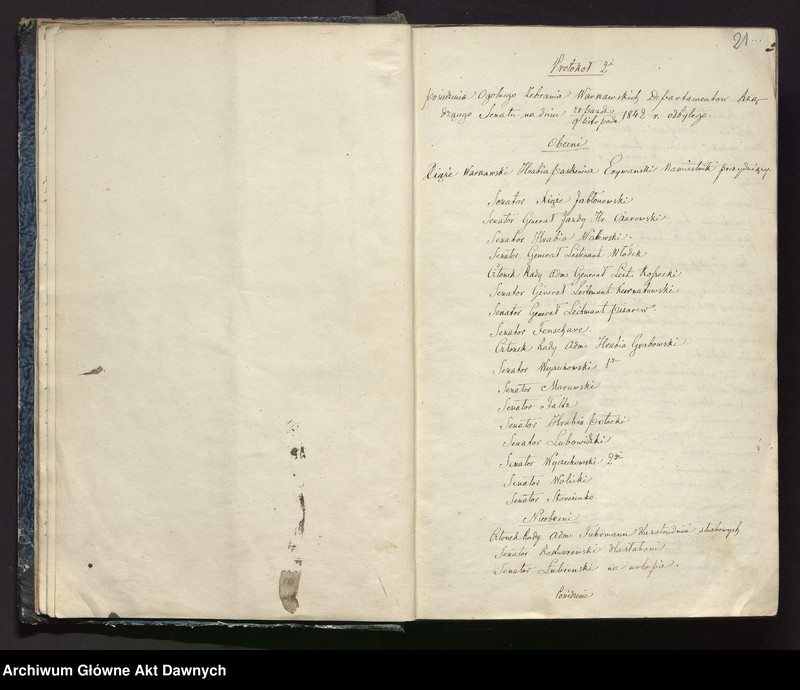 21
Protokoł 2i
posiedzenia Ogolnego Zebrania Warszawskich Departamentow Rzą-
dzącego Senatu na dniu 28 pazdz. / 9 listopada 1842 r. odbytego.
Obecni
Xiąże Warszawski Hrabia Paskiewicz Erywanski Namiestnik prezydujący
Senator Xiąże Jabłonowski
Senator Generał Jazdy Hr. Ożarowski
Senator Hrabia Walewski.
Senator Generał Leitnant Włodek
Członek Rady Adm: Generał Leit.
Senator Generał Leitnant Kurnatowski
Senator Generał Leitnant Pisarew.
Senator Fenschave.
Członek Rady Adm: Hrabia Grabowski.
Senator Wyczechowski 1szy
Senator Morawski
Senator Faltz
Senator Hrabia Potocki
Senator Lubowidzki
Senator Wyczechowski 2gi
Senator Wolicki
Senator Storożenko
Nieobecni
Członek Rady Adm: Fuhrmann dla zatrudnień służbowych
Senator Nakwaski dla słabości
Senator Lubienski na urlopie.
Posiedzenie
Archiwum Główne Akt Dawnych